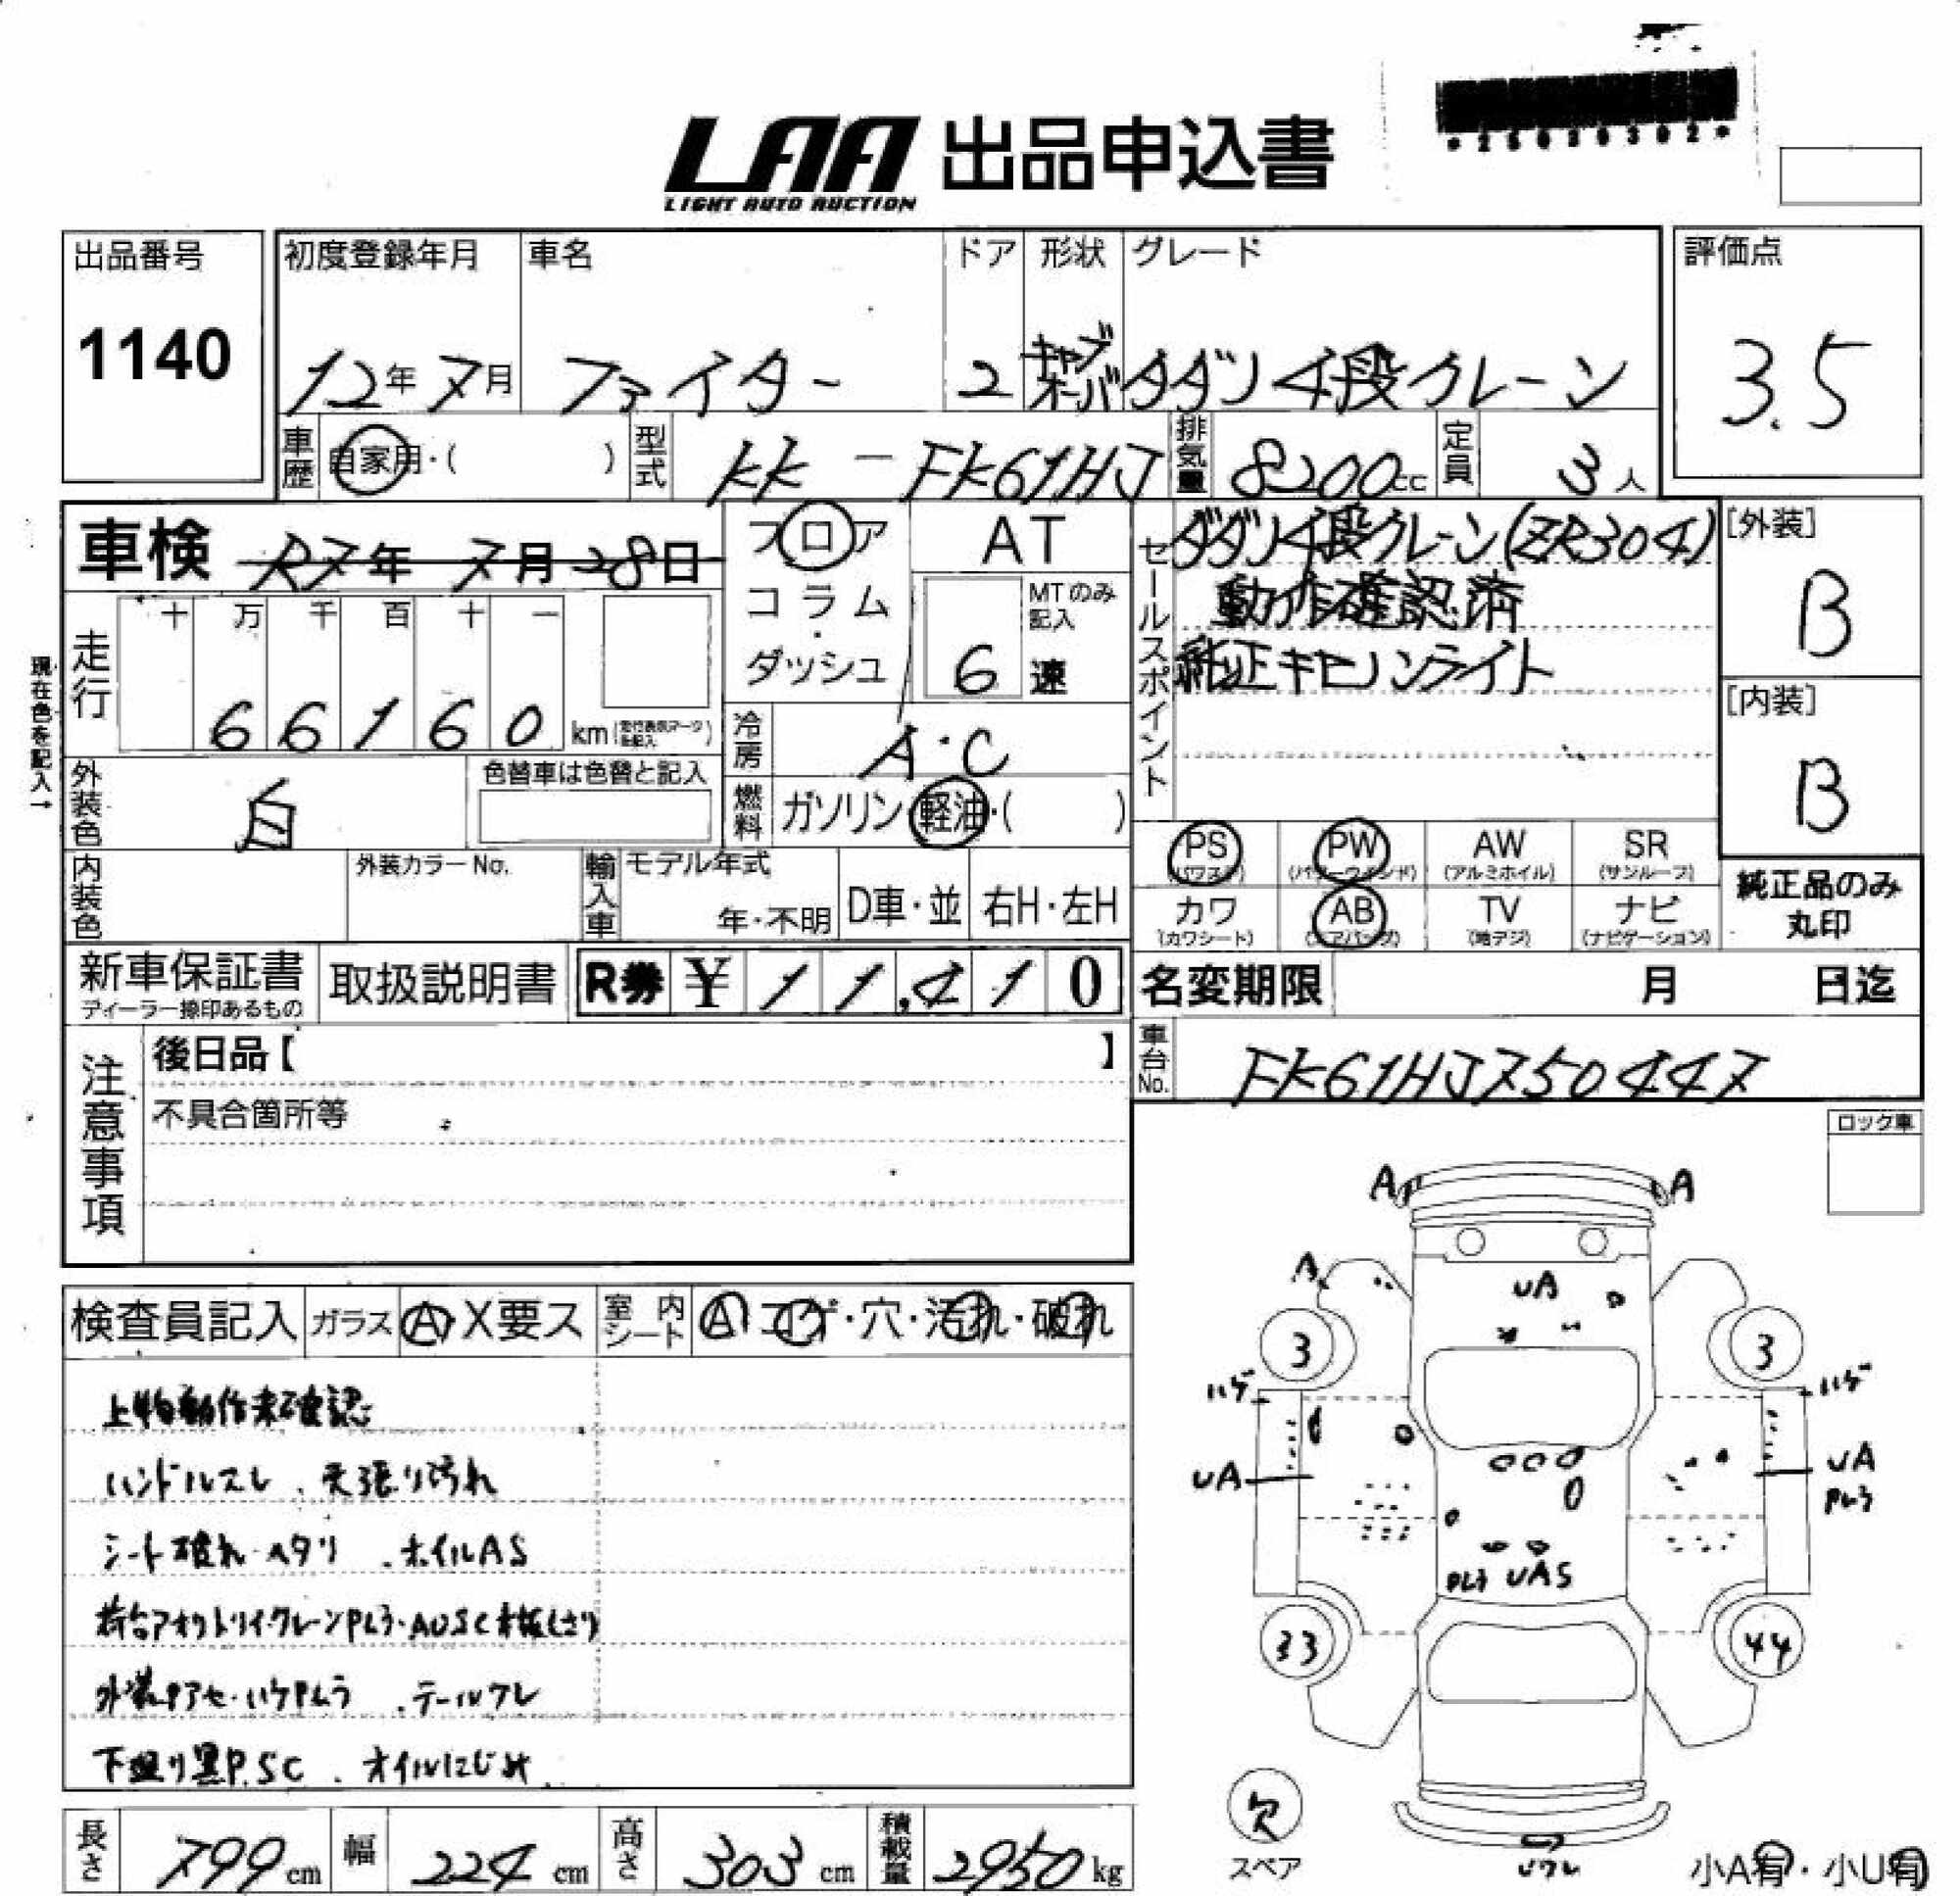 LAA 出品申込書
LIGHT AUTO AUCTION
*25020302*
出品番号
1140
初度登録年月
12年7月
車名
ファイター
ドア
2
形状
キャブオーバ
グレード
タダノ4段クレーン
評価点
3.5
車歴 自家用・( )
型式 KK-FK61HJ
排気量 8200cc
定員 3人
車検 R7年7月28日
フロア
コラム
・
ダッシュ
AT
MTのみ記入
6速
セールスポイント
タダノ4段クレーン(ZR304)
動作確認済
純正キセノンライト
[外装]
B
[内装]
B
現在色を記入→
走行
十 万 千 百 十 一
66160 km
冷房 A・C
外装色 白
色替車は色替と記入
燃料 ガソリン・軽油・( )
内装色
外装カラーNo.
輸入車
モデル年式
年・不明
D車・並
右H・左H
PS (パワステ)
PW (パワーウインド)
AW (アルミホイル)
SR (サンルーフ)
カワ (カワシート)
AB (エアバッグ)
TV (地デジ)
ナビ (ナビゲーション)
純正品のみ
丸印
新車保証書
ディーラー捺印あるもの
取扱説明書
R券 ¥11,410
名変期限 月 日迄
車台No. FK61HJ750447
注意事項
後日品【 】
不具合箇所等
ロック車
検査員記入
ガラス A・X要ス
室内シート A・コゲ・穴・汚れ・破れ
上物動作未確認
ハンドルスレ、天張り汚れ
シート破れ・ヘタリ、ホイルAS
テールワレ
下廻り黒P.SC、オイルにじみ
A
A
A
UA
3
3
ハゲ
ハゲ
UA
UA
Pムラ
Pムラ UAS
33
44
欠
スペア
Uワレ
小A有・小U有
長さ 799cm
幅 224cm
高さ 303cm
積載量 2950kg